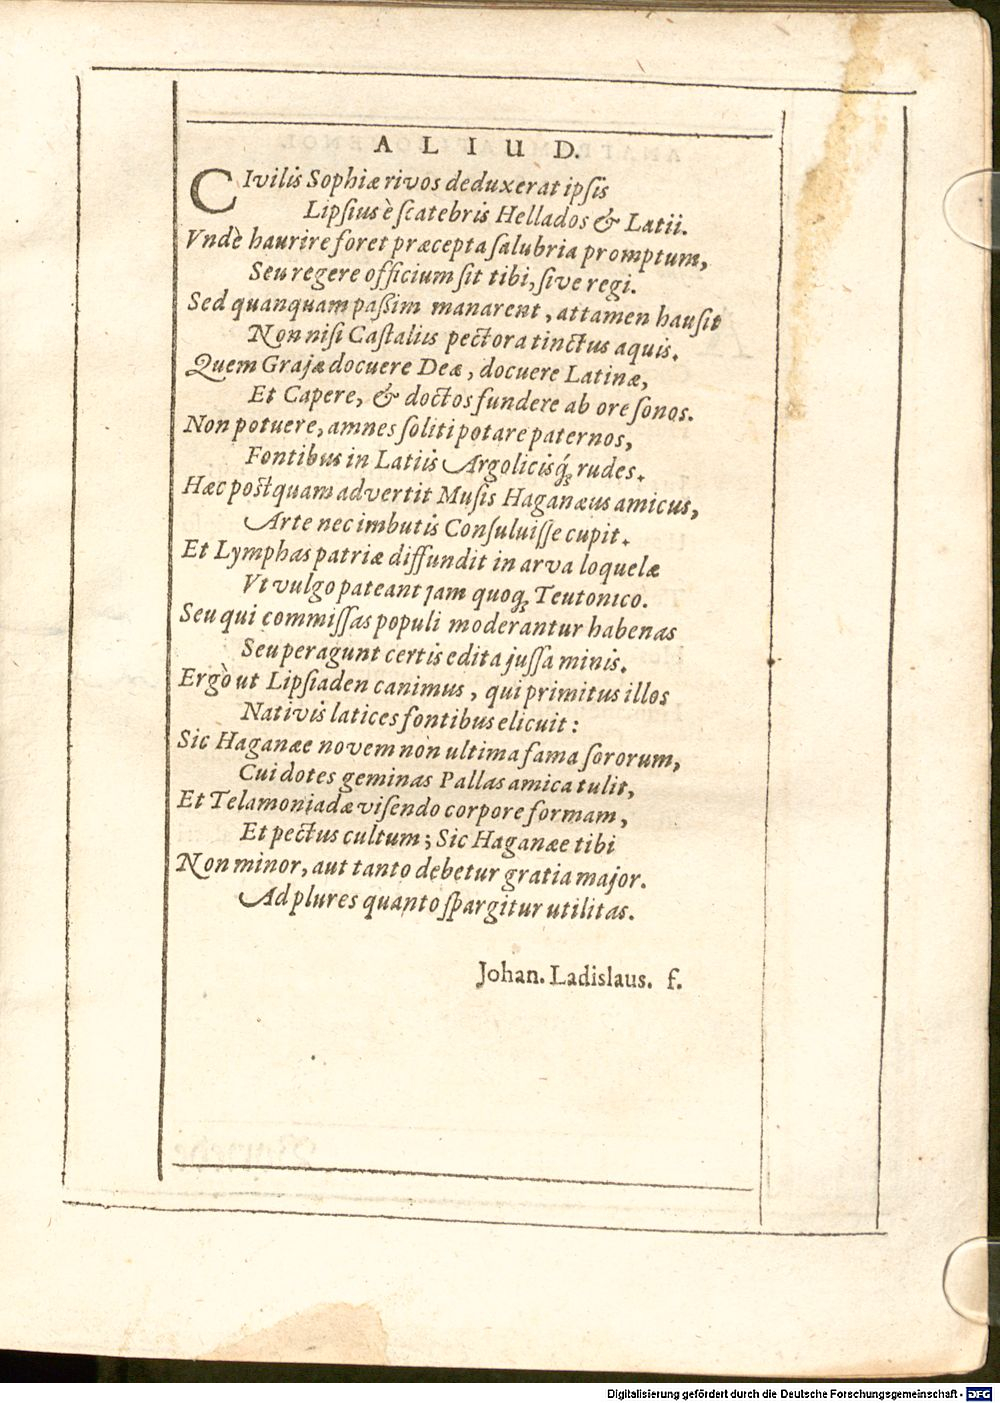 ALIUD.
CIvilis Sophiæ rivos deduxerat ipſis
Lipſius è ſcatebris Hellados & Latii.
Vndè haurire foret præcepta ſalubria promptum,
Seu regere officium ſit tibi, ſive regi.
Sed quanquam paßim manarent, attamen hauſit
Non niſi Caſtaliis pectora tinctus aquis.
Quem Grajæ docuere Deæ, docuere Latinæ,
Et Capere, & doctos fundere ab ore ſonos.
Non potuere, amnes ſoliti potare paternos,
Fontibus in Latiis Argolicisq́; rudes.
Hæc postquam advertit Muſis Haganæus amicus,
Arte nec imbutis Conſuluiſſe cupit.
Et Lymphas patriæ diffundit in arva loquelæ
Vt vulgo pateant jam quoq; Teutonico.
Seu qui commiſſas populi moderantur habenas
Seu peragunt certis edita juſſa minis.
Ergò ut Lipſiaden canimus, qui primitus illos
Nativis latices fontibus elicuit:
Sic Haganæ novem non ultima fama ſororum,
Cui dotes geminas Pallas amica tulit,
Et Telamoniadæ viſendo corpore formam,
Et pectus cultum; Sic Haganæe tibi
Non minor, aut tanto debetur gratia major.
Ad plures quanto ſpargitur utilitas.
Johan. Ladislaus. f.
Digitalisierung gefördert durch die Deutsche Forschungsgemeinschaft - DFG